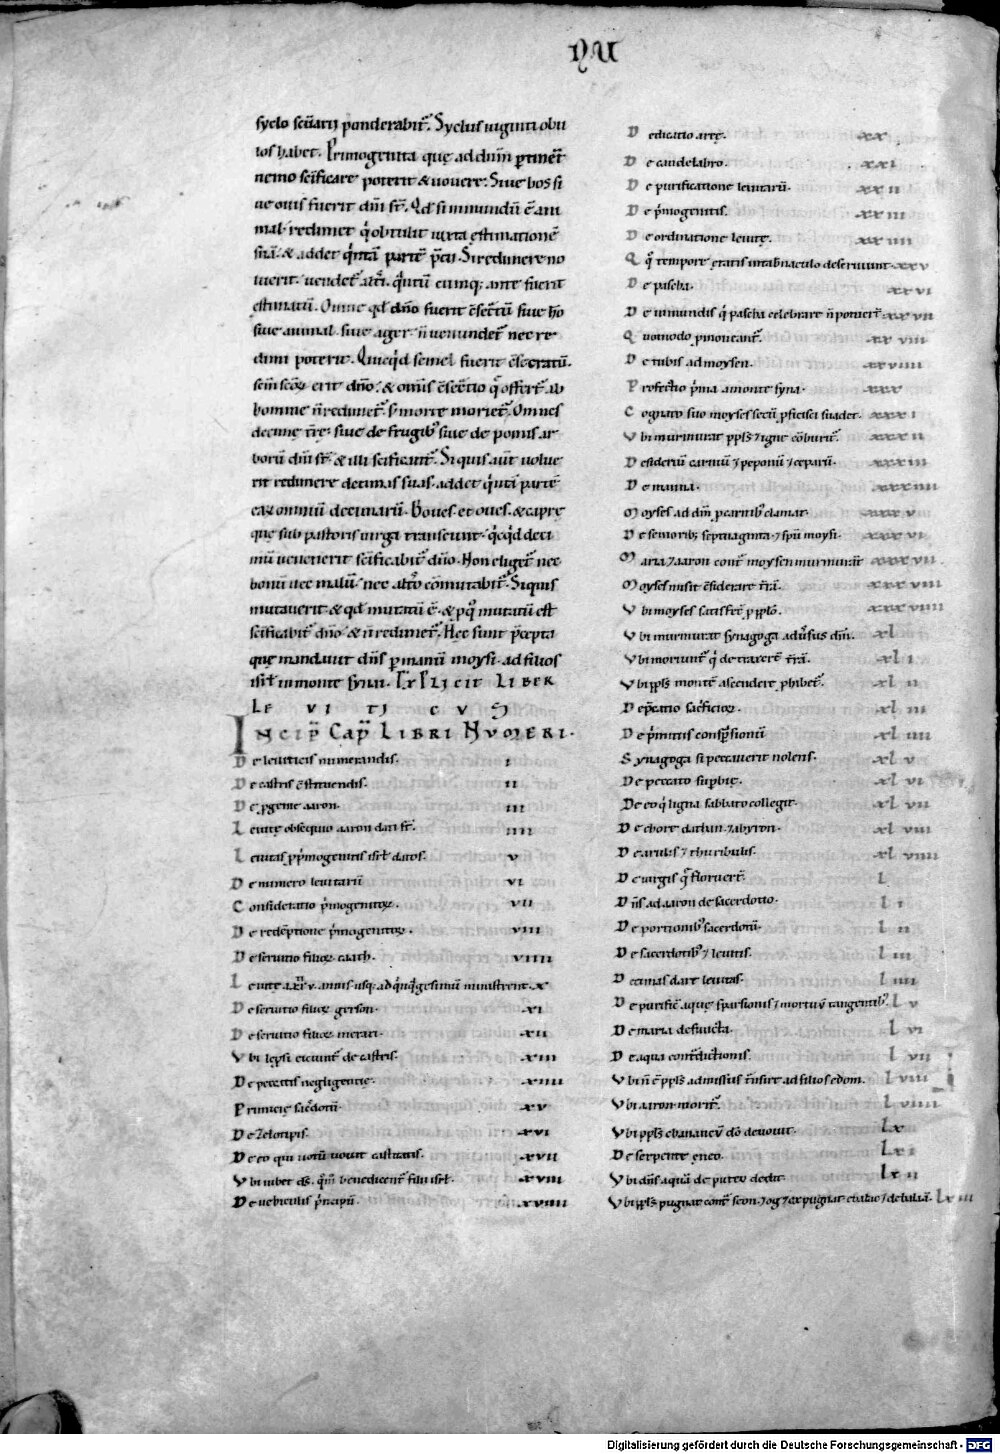 NU
syclo sc̄uarij ponderabit᷑. Syclus uiginti obu
los habet. Primogenita quę ad dn̄m ꝑtinēt
nemo sc̄ificare poterit & uouere. Siue bos si
ue ouis fuerit dn̄i st̄. Qd̄ si inmundū ē ani
mal redimet q̇ obtulit iuxta ęstimationē
suā. & addet q̇ntā partē p̄cij. Si redimere no
luerit. uendet᷑ alt̄i q̇ntū cumq; ante fuerit
ęstimatū. Omne qd̄ dn̄o fuerit c̄sec̄tū siue hō
siue animal siue ager. n̄ uenundet᷑ nec re
dimi poterit. Quicq̇d semel fuerit c̄secratū.
sc̄m sc̄oꝝ erit dn̄o. & om̄is c̄sec̄tio q̄ offert᷑ ab
homine n̄ redimet᷑. s; morte moriet᷑. Omnes
decimę t̄rę. siue de frugib; siue de pomis ar
borū dn̄i st̄. & illi sc̄ificant᷑. Si quis aut̄ uolue
rit redimere decimas suas. addet q̇ntā partē
earum omniū decimarū. Boues. et oues. & caprę
quę sub pastoris uirga transeunt. q̇cq̇d deci
mū uenerit sc̄ificabit᷑ dn̄o. Non eliget᷑ nec
bonū nec malū. nec alt̄o c̄mutabit᷑. Si quis
mutauerit. & qd̄ mutatū ē. & ꝓ q̊ mutatū est
sc̄ificabit᷑ dn̄o. & n̄ redimet᷑. Hęc sunt p̄cepta
quę mandauit dn̄s ꝑ manū moysi. ad filios
isrł in monte synai. EXPLICIT LIBER
LEVITICUS
INCIP̄ CAP̄ LIBRI NUMERI.
De leuiticis numerandis. I
De castris c̄stituendis. II
De ꝓgenie aaron. III
Leuitę obsequio aaron dati st̄. IIII
Leuitas ꝓ p̄mogenitis isrł datos. V
De numero leuitarū VI
Consideratio p̄mogenitoꝝ. VII
De redēptione p̄mogenitoꝝ. VIII
De seruitio filioꝝ caath. VIIII
Leuitę a xxv. annis usq; ad q̇nq̇gesimū ministrent. X
De seruitio filioꝝ gerson. XI
De seruitio filioꝝ merari. XII
Vbi lep̄si eiciunt᷑ de castris. XIII
De peccatis negligentię. XIIII
Primicię sac̄dotū. XV
De zelotipis. XVI
De eo qui uotū uouit castitatis. XVII
Vbi iubet ds̄. q̇m̄ benedicent᷑ filii isrł. XVIII
De uehiculis p̄ncipū. XVIIII
Dedicatio arę. XX
De candelabro. XXI
De purificatione leuitarū. XXII
De p̄mogenitis. XXIII
De ordinatione leuitę. XXIIII
Qǫ tempore ętatis in tabnaculo deseruiunt. XXV
De pascha. XXVI
De inmundis q̇ pascha celebrare n̄ poterit᷑. XXVII
Quomodo pmoueant᷑. XXVIII
De tubis ad moysen. XXVIIII
Profectio p̄ma a monte syna. XXX
Cognato suo moyses secū ꝓficisci suadet. XXXI
Vbi murmurat ppłs & igne cōburit᷑. XXXII
Desideriū carniū & peponū & ceparū. XXXIII
De manna. XXXIIII
Moyses ad dn̄m ꝑ carnib; clamat. XXXV
De seniorib; septuaginta. & sp̄u moysi. XXXVI
Maria & aaron cont̄ moysen murmurāt XXXVII
Moyses misit c̄siderare t̄rā. XXXVIII
Vbi moyses satisfec̄ ꝓ ppło. XXXVIIII
Vbi murmurat synagoga aduersus dn̄m. XL
Vbi moriunt᷑ q̇ detraxert̄ t̄rā. XLI
Vbi ppłs montē ascendere ꝓhibet᷑. XLII
Dep̄catio sac̄ficioꝝ. XLIII
De p̄mitiis consp̄sionū XLIIII
Synagoga si peccauerit nolens. XLV
De peccato supbię. XLVI
De eo q̇ ligna sabbato collegit. XLVII
De chore dathan & abyron. XLVIII
De arulis & thuribulis. XLVIIII
De uirgis q̄ floruert̄. L
Dn̄s ad aaron de sacerdotio. LI
De portionib; sacerdotū. LII
De sacerdotib; & leuitis. LIII
Decimas dare leuitas. LIIII
De purific̄ aquę sparsionis & mortuū tangentib; LV
De maria defuncta. LVI
De aqua cont̄dictionis. LVII
Vbi n̄ ē ppłs admissus t̄nsire ad filios edom. LVIII
Vbi aaron morit᷑. LVIIII
Vbi ppłs chananeū dō deuouit. LX
De serpente ęneo. LXI
Vbi dn̄s aquā de puteo dedit. LXII
Vbi ppłs pugnat cont̄ seon. & og & expugnat LXIII